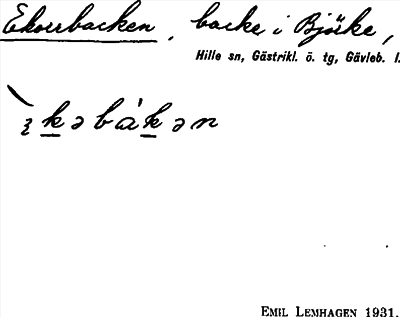 Ekorrbacken, backe i Björke,
Hille sn, Gästrikl. ö. tg, Gävleb. l.
ękəbàkən
EMIL LEMHAGEN 1931.